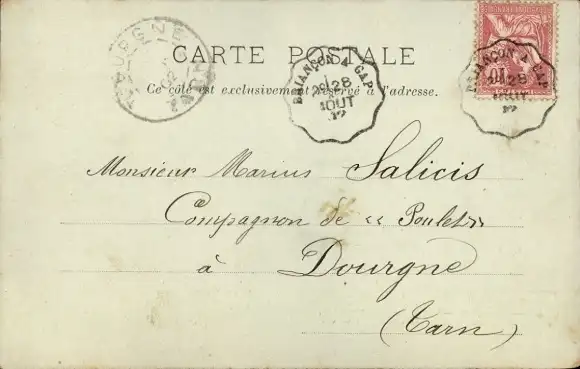 CARTE POSTALE
Ce côté est exclusivement réservé à l'adresse.
DOURGNE
BRIANÇON A GAP
1
28
AOUT
02
BRIANÇON A GAP
28
Monsieur Marius Salicis
Compagnon de « Poulet »
à Dourgne
(Tarn)